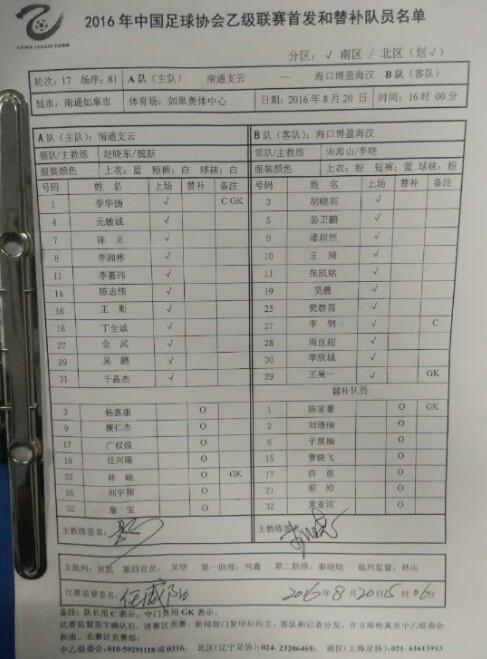 2016年中国足球协会乙级联赛首发和替补队员名单
分区：√ 南区 / 北区（划√）
轮次：17 场序：81 A 队（主队） 南通支云 — 海口博盈海汉 B 队（客队）
城市：南通如皋市 体育场：如皋奥体中心 日期：2016 年 8 月 20 日 时间：16 时 00 分
A 队（主队）：南通支云 B 队（客队）：海口博盈海汉
领队/主教练 赵晓东/魏新 领队/主教练 宋海山/李晓
服装颜色 上衣：蓝 短裤：白 球袜：白 服装颜色 上衣：粉 短裤：蓝 球袜：粉
号码 姓 名 上场 替补 备注 号码 姓 名 上场 替补 备注
1 李华扬 √ C GK 3 胡晓羽 √
4 元敏诚 √ 5 姜卫鹏 √
7 陈 正 √ 9 潘超然 √
8 李湘彬 √ 10 王 琦 √
11 李嘉玮 √ 11 张凯铭 √
14 陈志伟 √ 19 吴 √
16 王 √ 25 樊群霄 √
18 丁全诚 √ 27 李 钢 √ C
27 金 武 √ 28 周世超 √
29 吴 鹏 √ 30 李欣城 √
31 于昌杰 √ 39 王 一 √ GK
替补队员
3 杨惠康 O 1 陈家豪 O GK
9 康仁杰 O 2 刘 O
17 广权 O 6 于晨楠 O
19 任兴隆 O 15 曹晓飞 O
22 林 峻 O GK 17 薛 O
26 刘宇翔 O 21 蔡 O
32 詹 宝 O 32 黄亚 O
主教练签名： 主教练签名：
主裁判：贺凯 第四官员：吴恺 第一助理：何鑫 第二助理：秦晓助 裁判监督：林山
比赛监督签名： 2016年8月20日15时06分
备注：队长用 C 表示，守门员用 GK 表示。
比赛监督签字确认后，请赛区竞赛、新闻部门复印后向主、客队和记者分发，并立即传真至中乙组委会
和南、北赛区竞赛部。
中乙组委会:010-59291118 或 0316; 北区(辽宁足协):024-23206468; 南区(上海足协):021-61613913